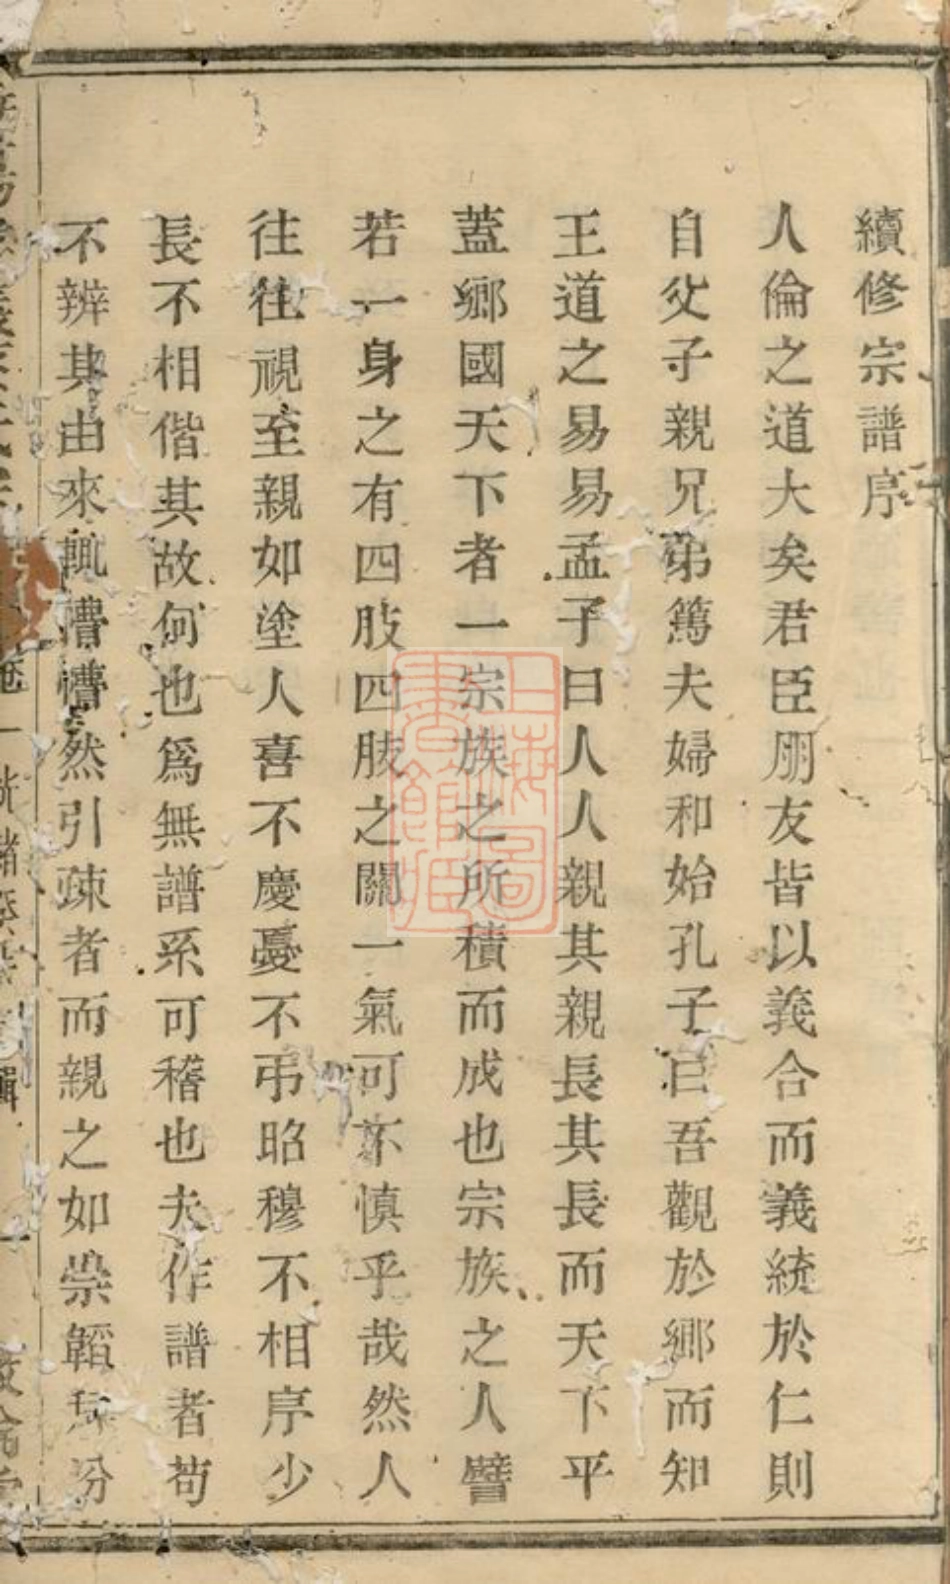 續修宗譜序
人倫之道大矣君臣朋友皆以義合而義統於仁則
自父子親兄弟篤夫婦和始孔子曰吾觀於鄉而知
王道之易易孟子曰人人親其親長其長而天下平
蓋鄉國天下者一宗族之所積而成也宗族之人譬
若一身之有四肢四肢之關一氣可不慎乎哉然人
往往視至親如塗人喜不慶憂不弔昭穆不相序少
長不相偕其故何也爲無譜系可稽也夫作譜者苟
不辨其由來輒懵懵然引疎者而親之如崇韜拜汾
卷一
上海圖書館藏